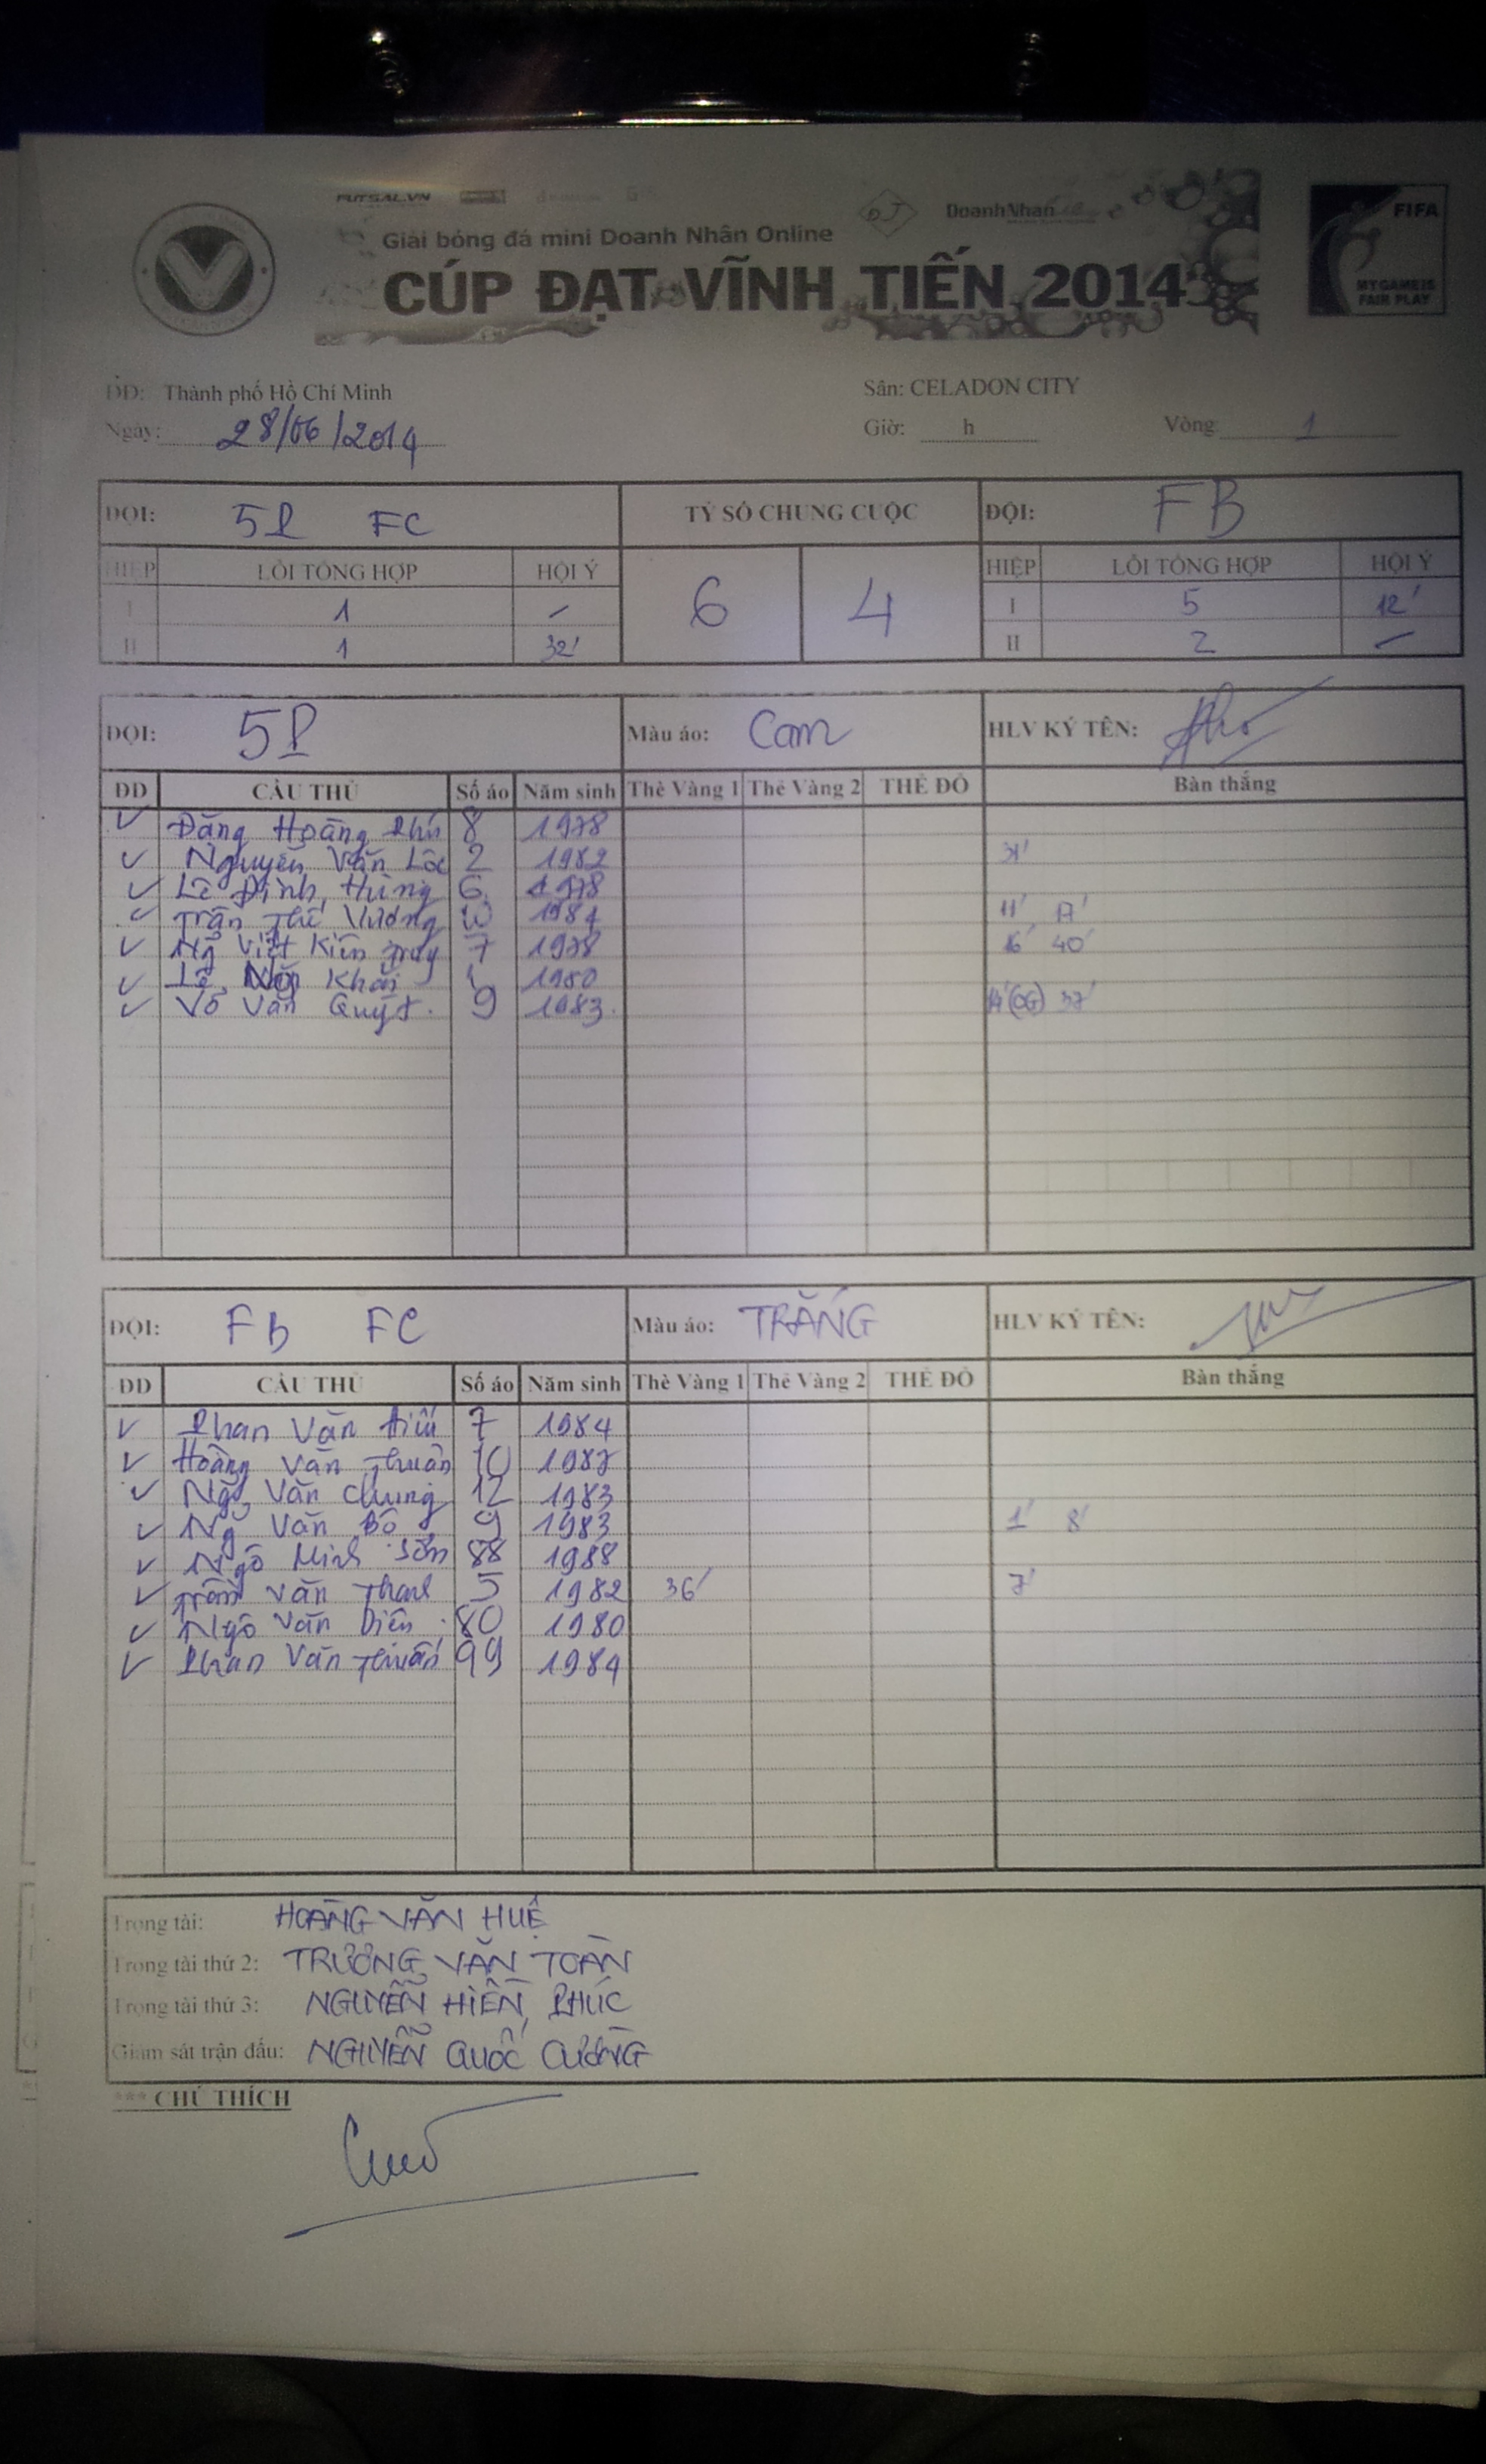 FUTSAL.VN
DJ DoanhNhan
Giải bóng đá mini Doanh Nhân Online
CÚP ĐẠT VĨNH TIẾN 2014
FIFA
MY GAME IS
FAIR PLAY
ĐĐ: Thành phố Hồ Chí Minh Sân: CELADON CITY
Ngày: 28/06/2014 Giờ: h Vòng 1
ĐỘI: 5P FC TỶ SỐ CHUNG CUỘC ĐỘI: FB
HIỆP LỖI TỔNG HỢP HỘI Ý 6 4 HIỆP LỖI TỔNG HỢP HỘI Ý
I 1 - I 5 12'
II 1 32' II 2 -
ĐỘI: 5P Màu áo: Cam HLV KÝ TÊN:
DD CẦU THỦ Số áo Năm sinh Thẻ Vàng 1 Thẻ Vàng 2 THẺ ĐỎ Bàn thắng
✓ Đặng Hoàng Phú 8 1978
✓ Nguyễn Văn Lộc 2 1982 31'
✓ Lê Đình Hùng 6 1978
✓ Trần Thế Vương 10 1984 11' 17'
✓ Ng Viết Kiên 7 1978 16' 40'
✓ Lê Khải 1 1980
✓ Võ Văn Quýt. 9 1983. 14' (OG) 37'
ĐỘI: FB FC Màu áo: TRẮNG HLV KÝ TÊN:
DD CẦU THỦ Số áo Năm sinh Thẻ Vàng 1 Thẻ Vàng 2 THẺ ĐỎ Bàn thắng
✓ Phan Văn Hiếu 7 1984
✓ Hoàng Văn Thuân 10 1987
✓ Ngô Văn Chung 12 1983
✓ Ng Văn Bô 9 1983 1' 8'
✓ Ngô Minh Sơn 88 1988
✓ Trần Văn Thanh 5 1982 36' 7'
✓ Ngô Văn 80 1980
✓ Phan Văn Thuấn 99 1984
Trọng tài: HOÀNG VĂN HUỆ
Trọng tài thứ 2: TRƯƠNG VĂN TOÀN
Trọng tài thứ 3: NGUYỄN HIỀN PHÚC
Giám sát trận đấu: NGUYỄN QUỐC CƯỜNG
*** CHÚ THÍCH